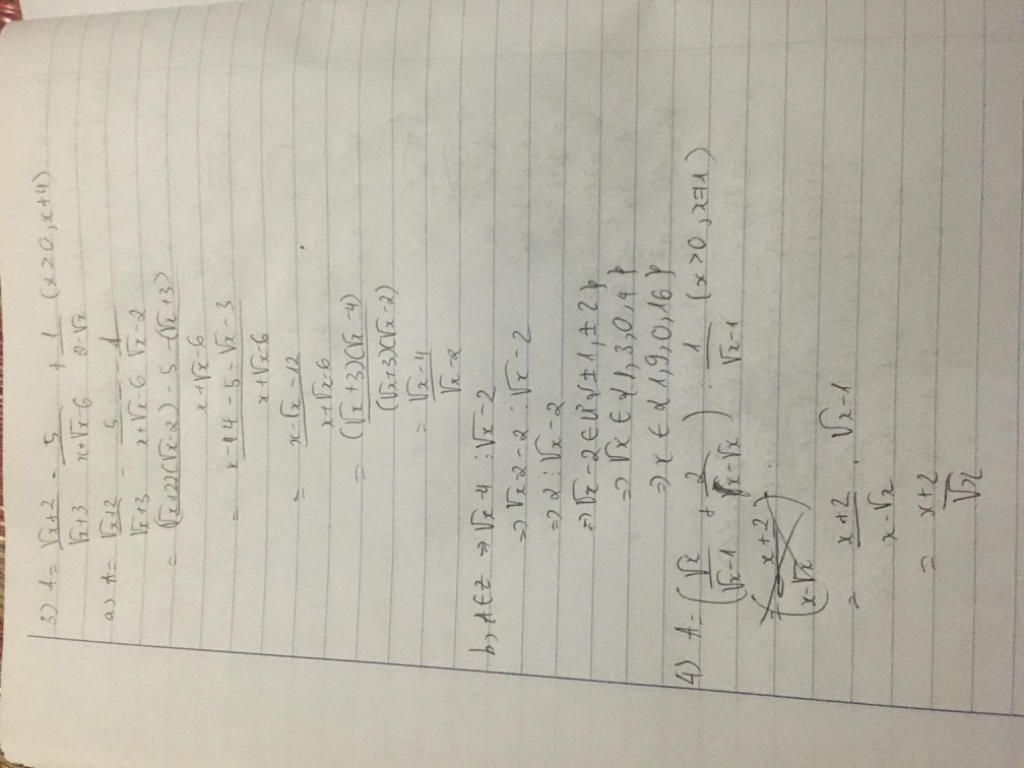 3) A = (√x+2)/(√x+3) - 5/(x+√x-6) + 1/(2-√x) (x≥0, x≠4)
a) A = (√x+2)/(√x+3) - 5/(x+√x-6) - 1/(√x-2)
= ((√x+2)(√x-2) - 5 - (√x+3))/(x+√x-6)
= (x-4-5-√x-3)/(x+√x-6)
= (x-√x-12)/(x+√x-6)
= ((√x+3)(√x-4))/((√x+3)(√x-2))
= (√x-4)/(√x-2)
b) A∈Z ⇒ √x-4 ⋮ √x-2
⇒ √x-2-2 ⋮ √x-2
⇒ 2 ⋮ √x-2
⇒ √x-2 ∈ Ư{±1, ±2}
⇒ √x ∈ {1,3,0,4}
⇒ x ∈ {1,9,0,16}
4) A = (√x/(√x-1) + 2/(x-√x)) : 1/(√x-1) (x>0, x≠1)
= (x+2)/(x-√x) . √x-1
= (x+2)/√x